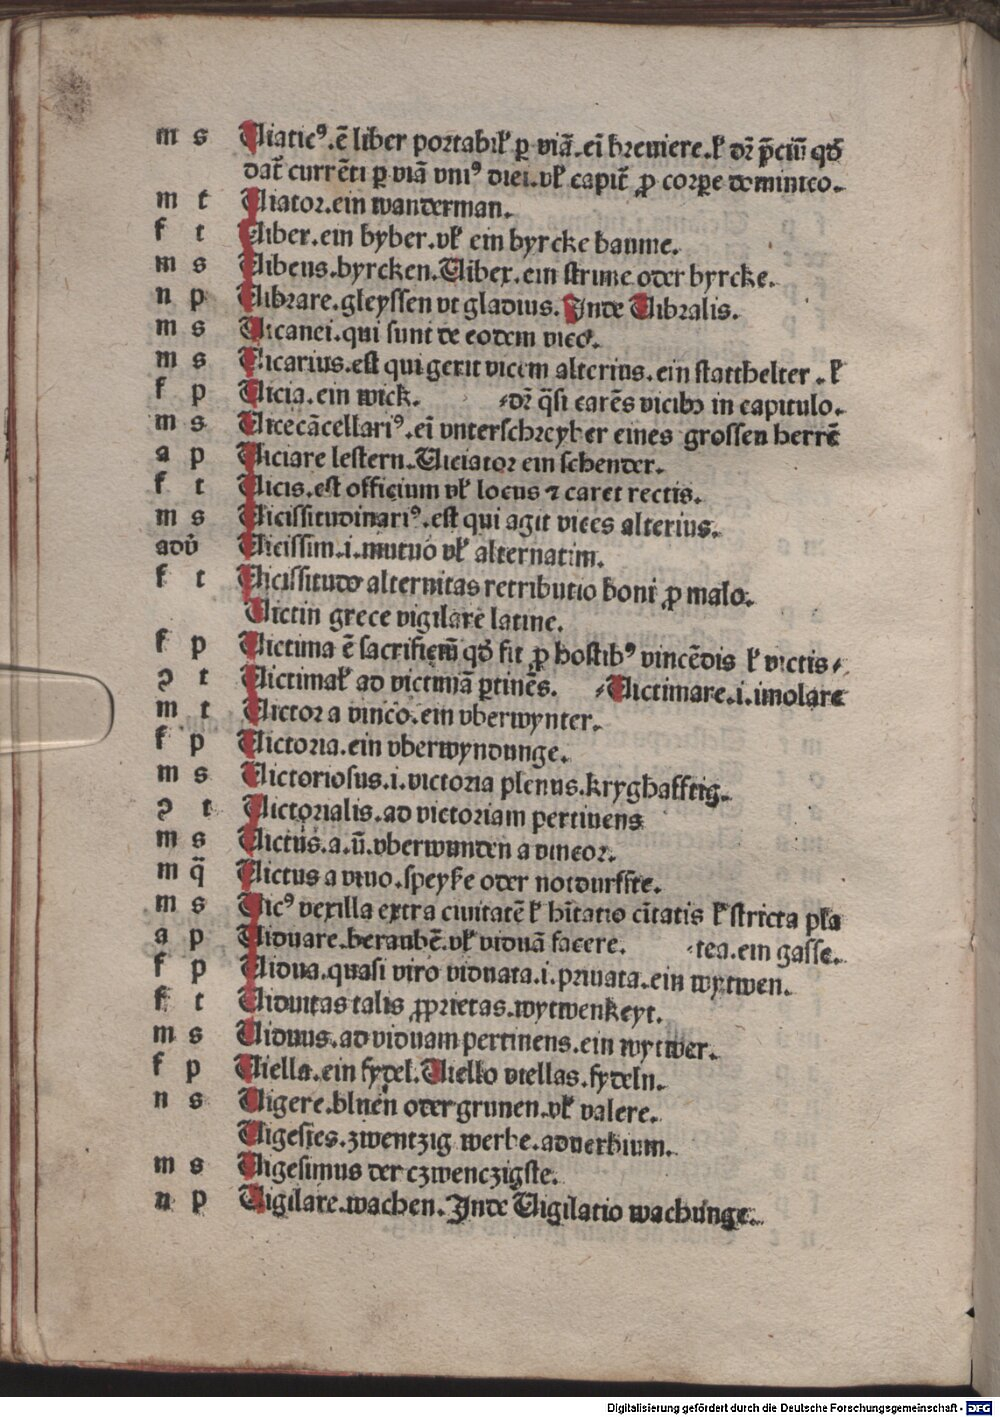 m s Uiaticꝰ.ē liber portabilꝭ ꝑ viā.eī breuiere.ł dr̄ p̄ciū qđ
dat̄ currēti ꝑ viā vniꝰ diei.vł capit̄ ꝓ corꝑe dominico.
m t Uiator.ein wanderman.
f t Uiber.ein byber.vł ein byrcke baume.
m s Uibens.byrcken.Uibex.ein strime oder byrcke.
n p Uibrare.gleyssen vt gladius.Inde Uibralis.
m s Uicanei.qui sunt de eodem vico.
m s Uicarius.est qui gerit vicem alterius.ein statthelter.ł
f p Uicia.ein wick. dr̄ q̄si carēs vicibꝫ in capitulo.
m s Uicecācellariꝰ.eī vnterschreyber eines grossen herrē
a p Uiciare lestern.Uiciator ein schender.
f t Uicis.est officium vł locus ⁊ caret rectis.
m s Uicissitudinariꝰ.est qui agit vices alterius.
adv̄ Uicissim.i.mutuo vł alternatim.
f t Uicissitudo alternitas retributio boni ꝓ malo.
Uictin grece vigilare latine.
f p Uictima ē sacrificiū qđ fit ꝓ hostibꝰ vincēdis ł victis
ꝯ t Uictimał ad victimā ꝑtinēs. Uictimare.i.imolare
m t Uictor a vinco.ein vberwynter.
f p Uictoria.ein vberwyndunge.
m s Uictoriosus.i.victoria plenus.kryghafftig.
ꝯ t Uictorialis.ad victoriam pertinens
m s Uictus.a.ū.vberwunden a vincor.
m q̄ Uictus a viuo.speyse oder notdurffte.
m s Uicꝰ vexilla extra ciuitatē ł hītatio cītatis ł stricta pla
a p Uiduare.beraubē.vł viduā facere. tea.ein gasse.
f p Uidua.quasi viro viduata.i.priuata.ein wytwen.
f t Uiduitas talis ꝓprietas.wytwenkeyt.
m s Uiduus.ad viduam pertinens.ein wytwer.
f p Uiella.ein fydel.Uiello viellas.fydeln.
n s Uigere.bluen oder grunen.vł valere.
Uigesies.zwentzig werbe.aduerbium.
m s Uigesimus der czwenczigste.
n p Uigilare.wachen.Inde Uigilatio wachunge.
Digitalisierung gefördert durch die Deutsche Forschungsgemeinschaft - DFG